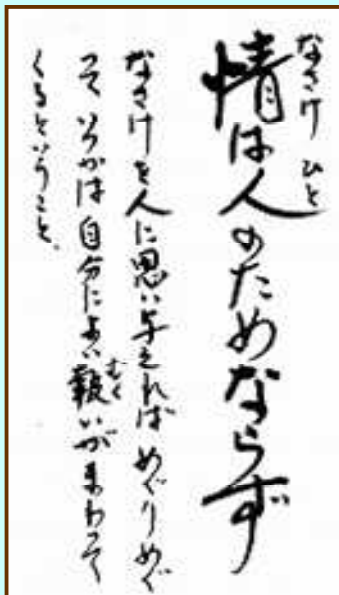 なさけ ひと
情は人のためならず
なさけを人に思い与えれば めぐりめぐ
って いつかは 自分によい報いがまわって
むく
くるということ。